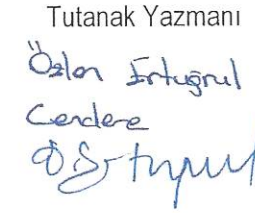 Tutanak Yazmanı
Özlen Ertuğrul
Cendere